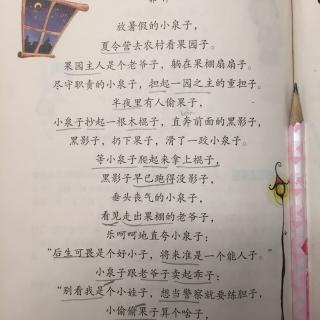 放暑假的小泉子，
夏令营去农村看果园子。
果园主人是个老爷子，躺在果棚扇扇子。
尽守职责的小泉子，担起一园之主的重担子。
半夜里有人偷果子，
小泉子抄起一根木棍子，直奔前面的黑影子，
黑影子，扔下果子，滑了一跤小泉子。
等小泉子爬起来拿上棍子，
黑影子早已跑得没影子，
垂头丧气的小泉子，
看见走出果棚的老爷子，
乐呵呵地直夸小泉子：
“后生可畏是个好小子，将来准是一个能人子。”
小泉子跟老爷子卖起乖子：
“别看我是个小娃子，想当警察就要练胆子，
小偷偷果子算个啥子，